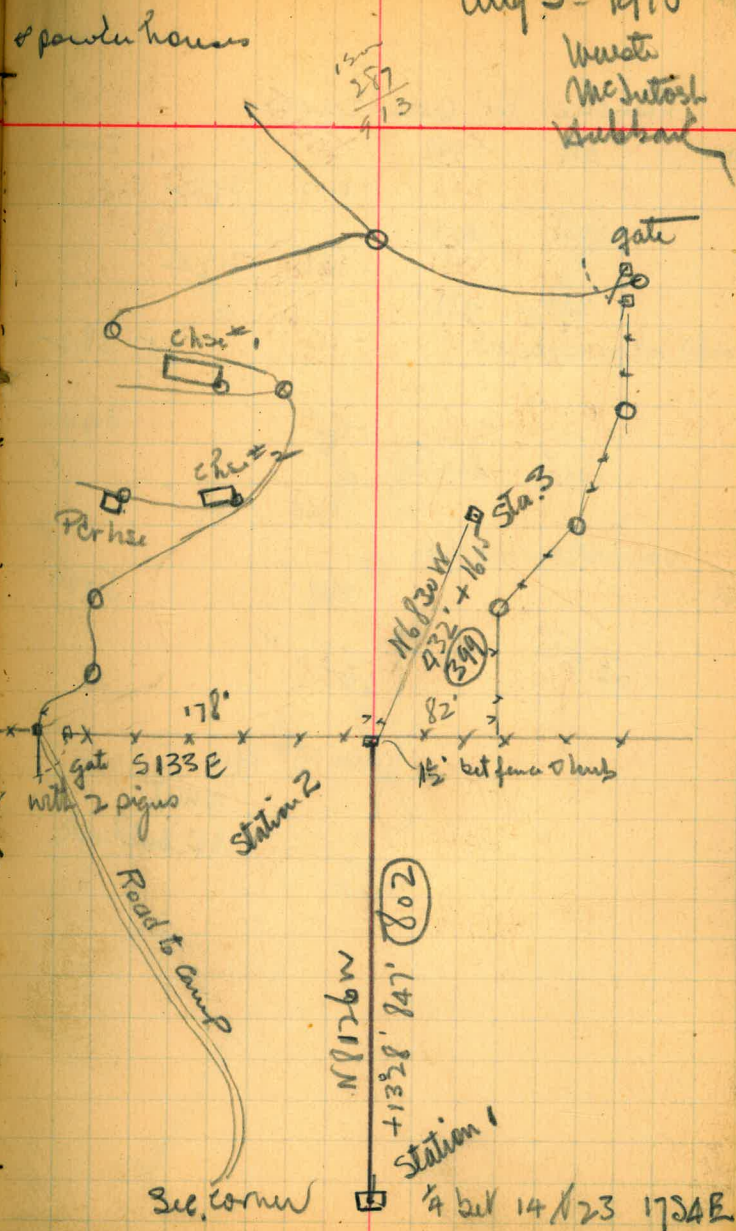 & powder houses
287
913
McIntosh
Hubbard
gate
Chse #1
Chse #2
Pdr hse
Sta. 3
N6830W
432' + 1615
399
178'
82'
gate S133E
with 2 signs
15' bet fence & hub
Station 2
Road to Camp
802
N8126W
+13°28' 847'
Station 1
Sec. corner
¼ bet 14 & 23 17S4E